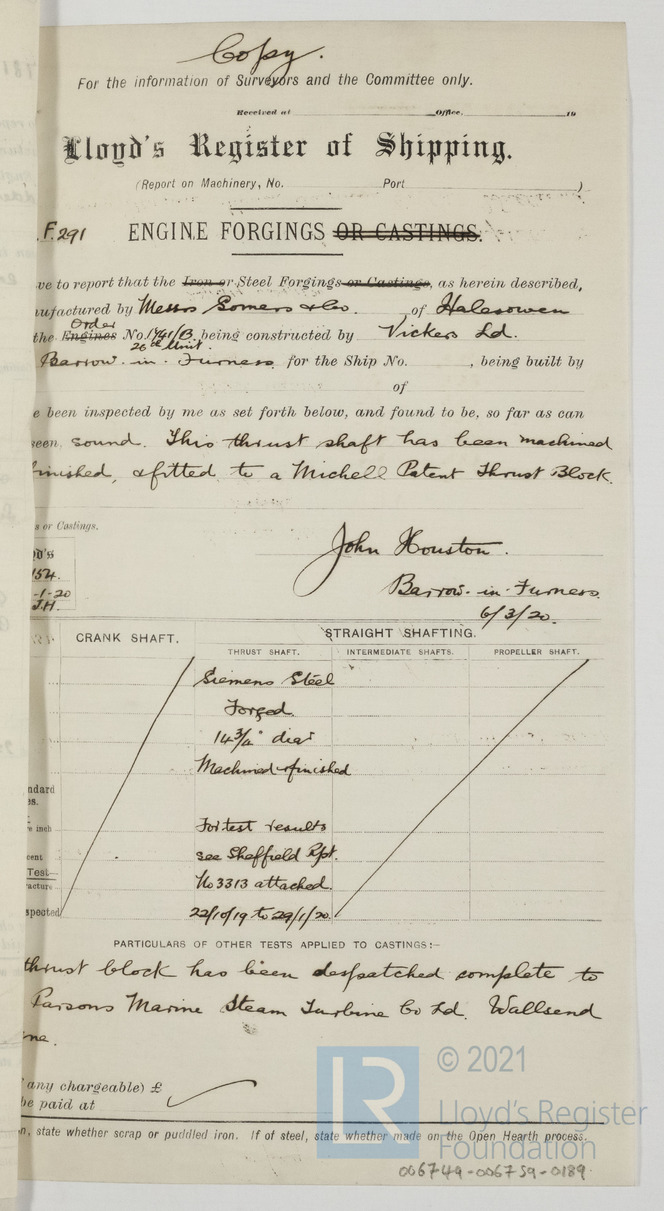 Copy.
For the information of Surveyors and the Committee only.
Received at Office, 19
Lloyd's Register of Shipping.
(Report on Machinery, No. Port )
F.291 ENGINE FORGINGS OR CASTINGS.
ve to report that the Iron or Steel Forgings or Castings, as herein described,
nufactured by Messrs Somers & Co. of Halesowen
Order
the Engines No. 1741/B being constructed by Vickers Ld.
26th Unit.
Barrow-in-Furness for the Ship No. , being built by
of
e been inspected by me as set forth below, and found to be, so far as can
seen, sound. This thrust shaft has been machined
finished, & fitted to a Michell Patent Thrust Block.
s or Castings.
John Houston.
yd's
154.
Barrow-in-Furness.
-1-20
J.H.
6/3/20.
CRANK SHAFT. STRAIGHT SHAFTING.
THRUST SHAFT. INTERMEDIATE SHAFTS. PROPELLER SHAFT.
Siemens Steel
Forged.
14 3/4" diar
Machined & finished
ndard
es.
For test results
re inch
see Sheffield Rpt.
cent
Test
No 3313 attached.
racture
spected 22/10/19 to 29/1/20.
PARTICULARS OF OTHER TESTS APPLIED TO CASTINGS:—
thrust block has been despatched complete to
Parsons Marine Steam Turbine Co Ld. Wallsend
ne.
any chargeable) £
be paid at
n, state whether scrap or puddled iron. If of steel, state whether made on the Open Hearth process.
LR
© 2021
Lloyd's Register
Foundation
006749-006759-0189